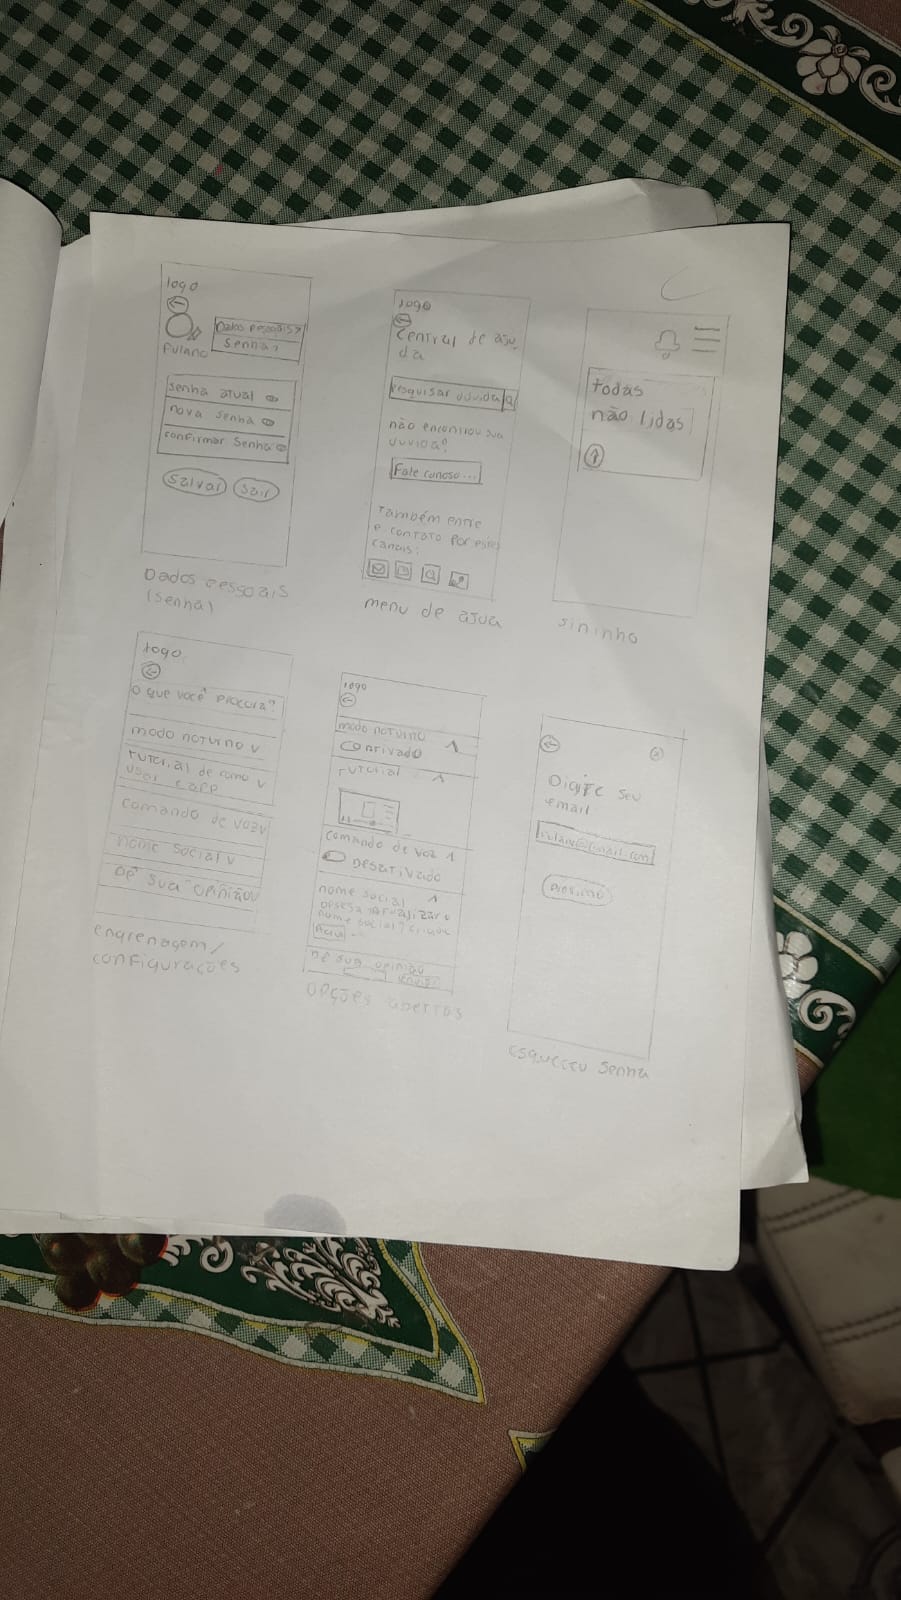 logo
Dados pessoais >
senha >
Fulano
senha atual
nova senha
confirmar senha
salvar sair
Dados pessoais
(senha)
logo
Central de aju
da
Pesquisar dúvida
não encontrou sua
duvida?
Fale conosco...
também entre
e contato por estes
canais:
menu de ajuda
todas
não lidas
sininho
logo
O que você procura?
modo noturno v
tutorial de como v
usar
comando de voz v
nome social v
Dê sua opinião v
engrenagem/
configurações
logo
modo noturno ^
tutorial ^
comando de voz ^
Desativado
nome social ^
nome social?
Dê sua opinião
enviar
opções abertas
Digite seu
email
esqueceu senha